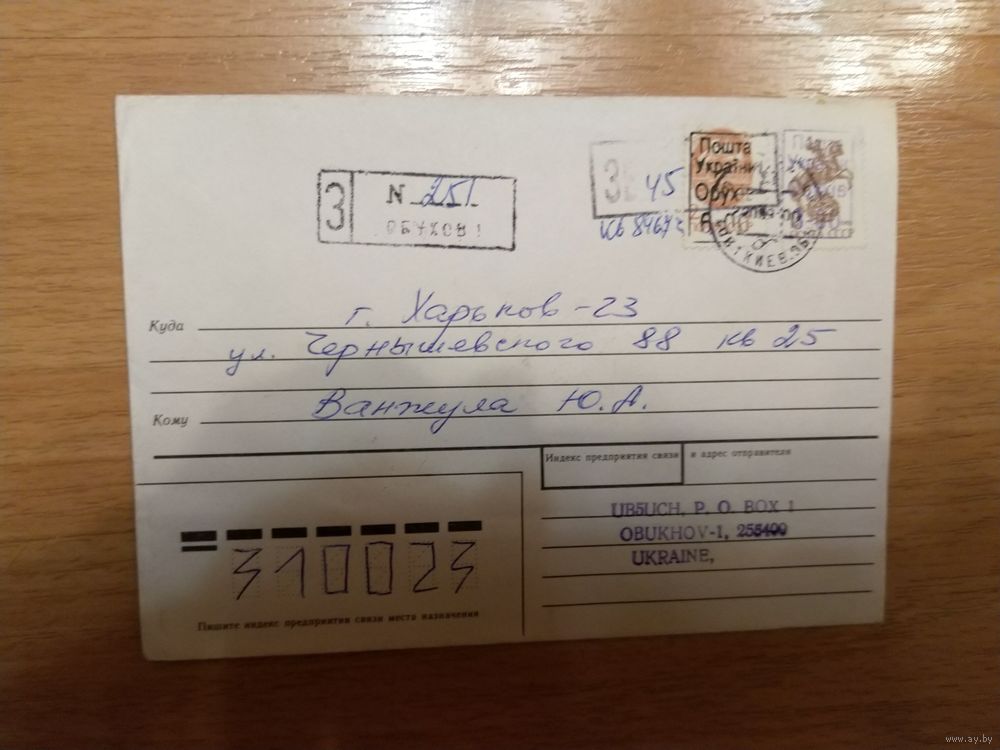 З N 251
ОБУХОВ 1
45
Пошта
України
Обух
Куда г. Харьков-23
ул. Чернышевского 88 кв 25
Кому Ванжула Ю.А.
Индекс предприятия связи и адрес отправителя
UB5UCH, P. O. BOX 1
OBUKHOV-1, 255400
UKRAINE,
310023
Пишите индекс предприятия связи места назначения
www.ay.by